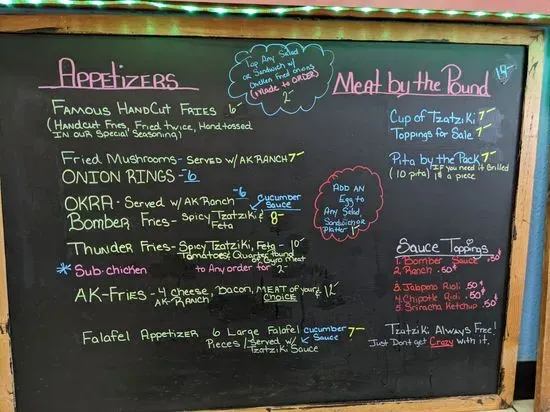 APPETIZERS
FAMOUS HANDCUT FRIES 6
(HANDCUT FRIES, FRIED TWICE, HAND TOSSED
IN OUR SPECIAL SEASONING)
FRIED MUSHROOMS - SERVED W/ AK RANCH 7
ONION RINGS - 6
OKRA - SERVED W/ AK RANCH - 6
BOMBER FRIES - SPICY TZATZIKI & FETA 8
CUCUMBER SAUCE
THUNDER FRIES - SPICY TZATZIKI, FETA - 10
TOMATOES, QUARTER POUND
OF GYRO MEAT
* SUB-CHICKEN to ANY order for 2
AK-FRIES - 4 CHEESE, BACON, MEAT OF YOUR CHOICE 12
AK-RANCH
FALAFEL APPETIZER 6 LARGE FALAFEL
PIECES / SERVED W/
TZATZIKI SAUCE
CUCUMBER SAUCE 7
TOP ANY SALAD
OR SANDWICH W/
CHICKEN FRIED ONIONS
(MADE to ORDER)
2
ADD AN
EGG to
ANY SALAD,
SANDWICH OR
PLATTER 1
MEAT BY THE POUND
14
CUP OF TZATZIKI 7
TOPPINGS FOR SALE 7
PITA BY THE PACK 7
(10 PITA) IF YOU NEED IT GRILLED
1$ A PIECE
SAUCE TOPPINGS
1. BOMBER SAUCE .50¢
2. RANCH .50¢
3. JALAPENO AIOLI .50¢
4. CHIPOTLE AIOLI .50¢
5. SRIRACHA KETCHUP .50¢
TZATZIKI ALWAYS FREE!
JUST DON'T GET CRAZY WITH IT.